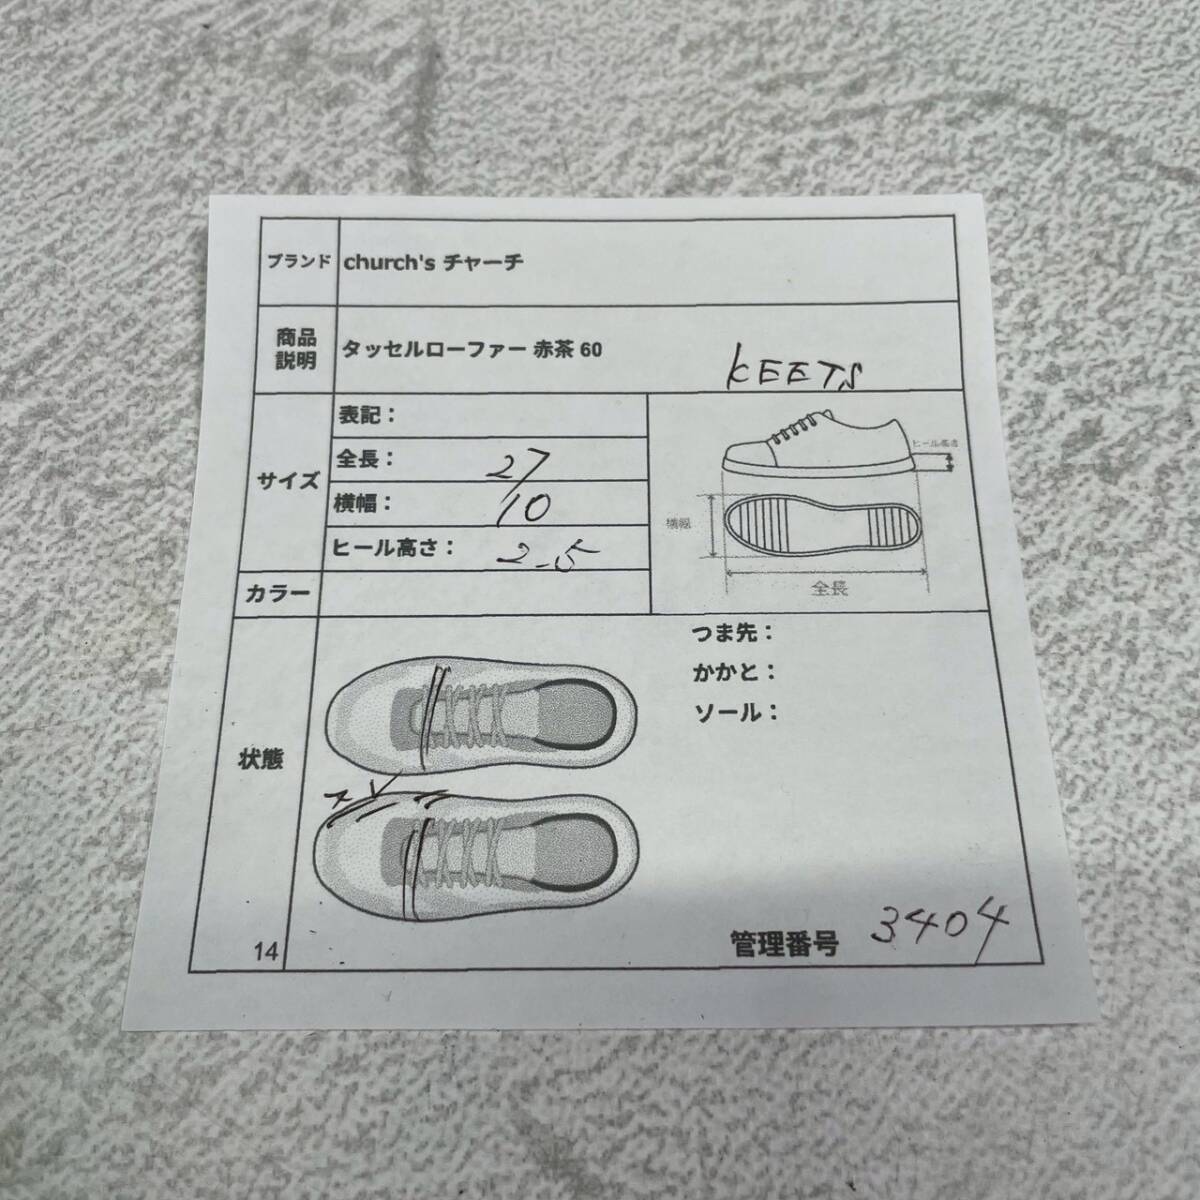 ブランド church's チャーチ
商品説明 タッセルローファー 赤茶 60 KEETS
サイズ
表記：
全長： 27
横幅： 10
ヒール高さ： 2.5
ヒール高さ
横幅
全長
カラー
状態
つま先：
かかと：
ソール：
スレ
14
管理番号 3404